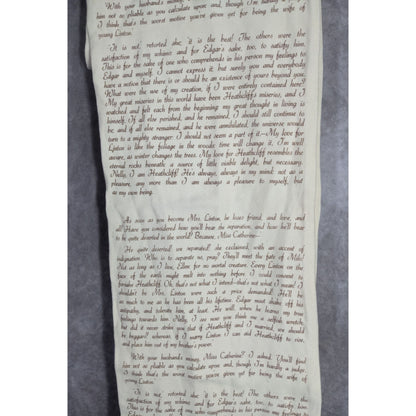 With your husband's money,
him not so pliable as you calculate upon and, though I'm
I think, that's the worst motive you've given yet for being the wife of
young Linton.'
'It is not,' retorted she; 'it is the best! The others were the
satisfaction of my whims: and for Edgar's sake, too, to satisfy him.
This is for the sake of one who comprehends in his person my feelings to
Edgar and myself. I cannot express it; but surely you and everybody
have a notion that there is or should be an existence of yours beyond you.
What were the use of my creation, if I were entirely contained here?
My great miseries in this world have been Heathcliff's miseries, and I
watched and felt each from the beginning: my great thought in living is
himself. If all else perished, and he remained, I should still continue to
be; and if all else remained, and he were annihilated, the universe would
turn to a mighty stranger: I should not seem a part of it.—My love for
Linton is like the foliage in the woods: time will change it, I'm well
aware, as winter changes the trees. My love for Heathcliff resembles the
eternal rocks beneath: a source of little visible delight, but necessary.
Nelly, I am Heathcliff! He's always, always in my mind: not as a
pleasure, any more than I am always a pleasure to myself, but
as my own being.
As soon as you become Mrs. Linton, he loses friend, and love, and
all! Have you considered how you'll bear the separation, and how he'll bear
to be quite deserted in the world? Because, Miss Catherine—
'He quite deserted! we separated!' she exclaimed, with an accent of
indignation. 'Who is to separate us, pray? They'll meet the fate of Milo!
Not as long as I live, Ellen: for no mortal creature. Every Linton on the
face of the earth might melt into nothing before I could consent to
forsake Heathcliff. Oh, that's not what I intend—that's not what I mean! I
shouldn't be Mrs. Linton were such a price demanded! He'll be
as much to me as he has been all his lifetime. Edgar must shake off his
antipathy, and tolerate him, at least. He will, when he learns my true
feelings towards him. Nelly, I see now you think me a selfish wretch;
but did it never strike you that if Heathcliff and I married, we should
be beggars? whereas, if I marry Linton I can aid Heathcliff to rise,
and place him out of my brother's power.'
'With your husband's money, Miss Catherine?' I asked. 'You'll find
him not so pliable as you calculate upon: and, though I'm hardly a judge,
I think that's the worst motive you've given yet for being the wife of
young Linton.'
'It is not,' retorted she; 'it is the best! The others were the
satisfaction of my whims: and for Edgar's sake, too, to satisfy him.
This is for the sake of one who comprehends in his person my feelings to